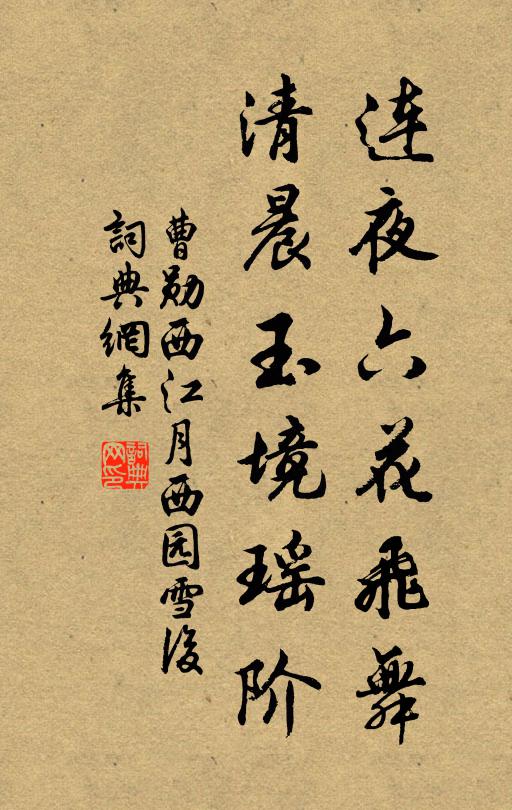 连夜六花飞舞
清晨玉境瑶阶
曹勋西江月西园雪後
詞典網集
詞典网印